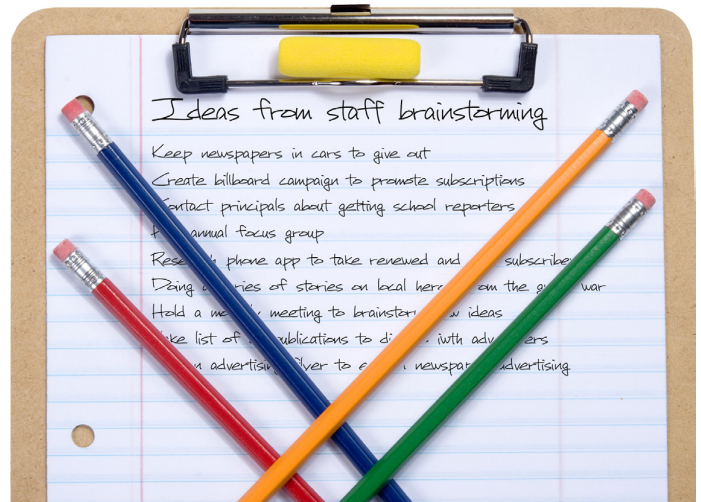 Ideas from staff brainstorming
Keep newspapers in cars to give out
Create billboard campaign to promote subscriptions
Contact principals about getting school reporters
annual focus group
Research phone app to take renewed and subscribe
Doing series of stories on local from the war
Hold a meeting to brainstorm ideas
list of publications to iwth advertisers
advertising flyer to newspaper advertising